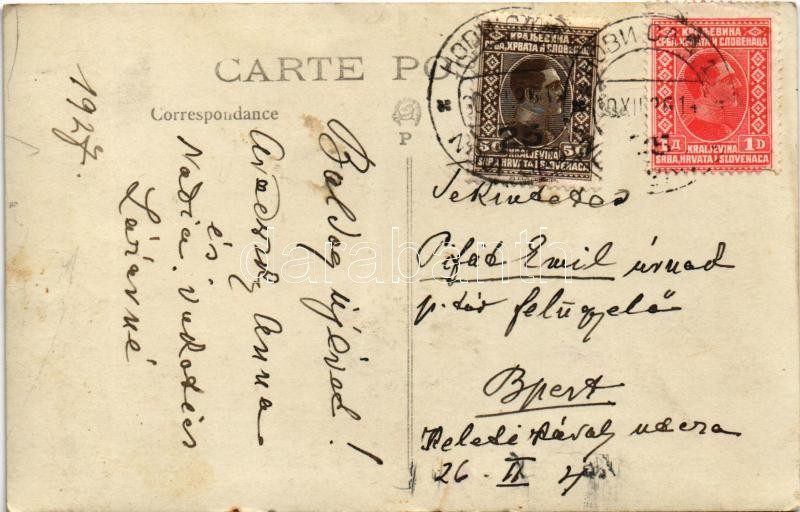 CARTE PO
Correspondance
P
1927.
Boldog újévet!
Anna
és
Nadia
Lázárné
КРАЉЕВИНА
СРБА, ХРВАТА И СЛОВЕНАЦА
25
KRALJEVINA
SRBA, HRVATA I SLOVENACA
КРАЉЕВИНА
СРБА, ХРВАТА И СЛОВЕНАЦА
1Д 1D
KRALJEVINA
SRBA, HRVATA I SLOVENACA
НОВИ
Tekintetes
Emil úrnak
felügyelő
Bpest
utcza
26 II 4
darabanth